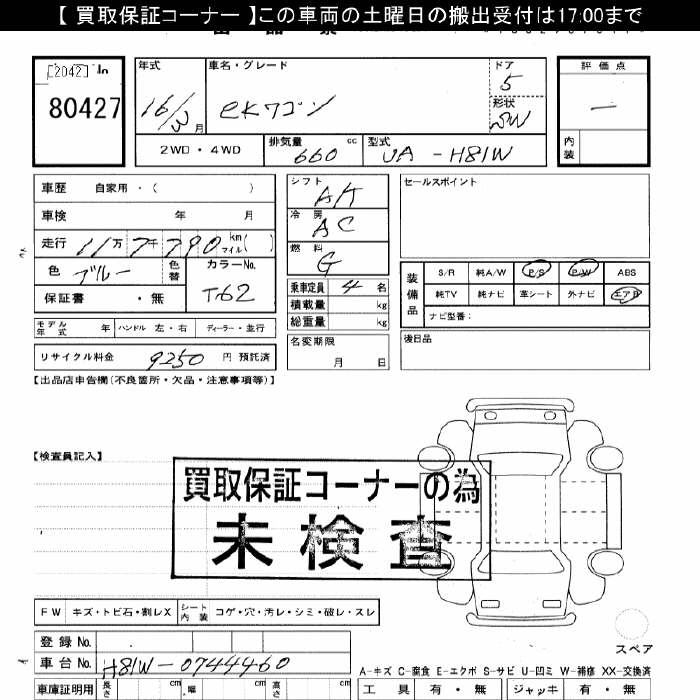 【 買取保証コーナー 】この車両の土曜日の搬出受付は17:00まで
[2042]
80427
年式
16/3月
車名・グレード
eKワゴン
ドア
5
形状
SW
評価点
—
内装
2WD・4WD
排気量
660 cc
型式
UA - H81W
車歴 自家用・( )
車検 年 月
走行 11万7千790 km マイル ( )
色 ブルー
色替
カラーNo.
T62
保証書 ・無
モデル年式 年 ハンドル 左・右 ディーラー・並行
リサイクル料金 9250 円 預託済
シフト
AT
冷房
AC
燃料
G
乗車定員 4 名
積載量 kg
総重量 kg
名変期限
月 日
セールスポイント
装備品
S/R 純A/W P/S P/W ABS
純TV 純ナビ 革シート 外ナビ エアB
ナビ型番:
後日品
【出品店申告欄(不良箇所・欠品・注意事項等)】
【検査員記入】
買取保証コーナーの為
未検査
FW キズ・トビ石・割レX シート内装 コゲ・穴・汚レ・シミ・破レ・スレ
スペア
登録 No.
車台 No. H81W-0744460
車庫証明用 長さ cm 幅 cm 高さ cm
A-キズ C-腐食 E-エクボ S-サビ U-凹ミ W-補修 XX-交換済
工具 有・無 ジャッキ 有・無